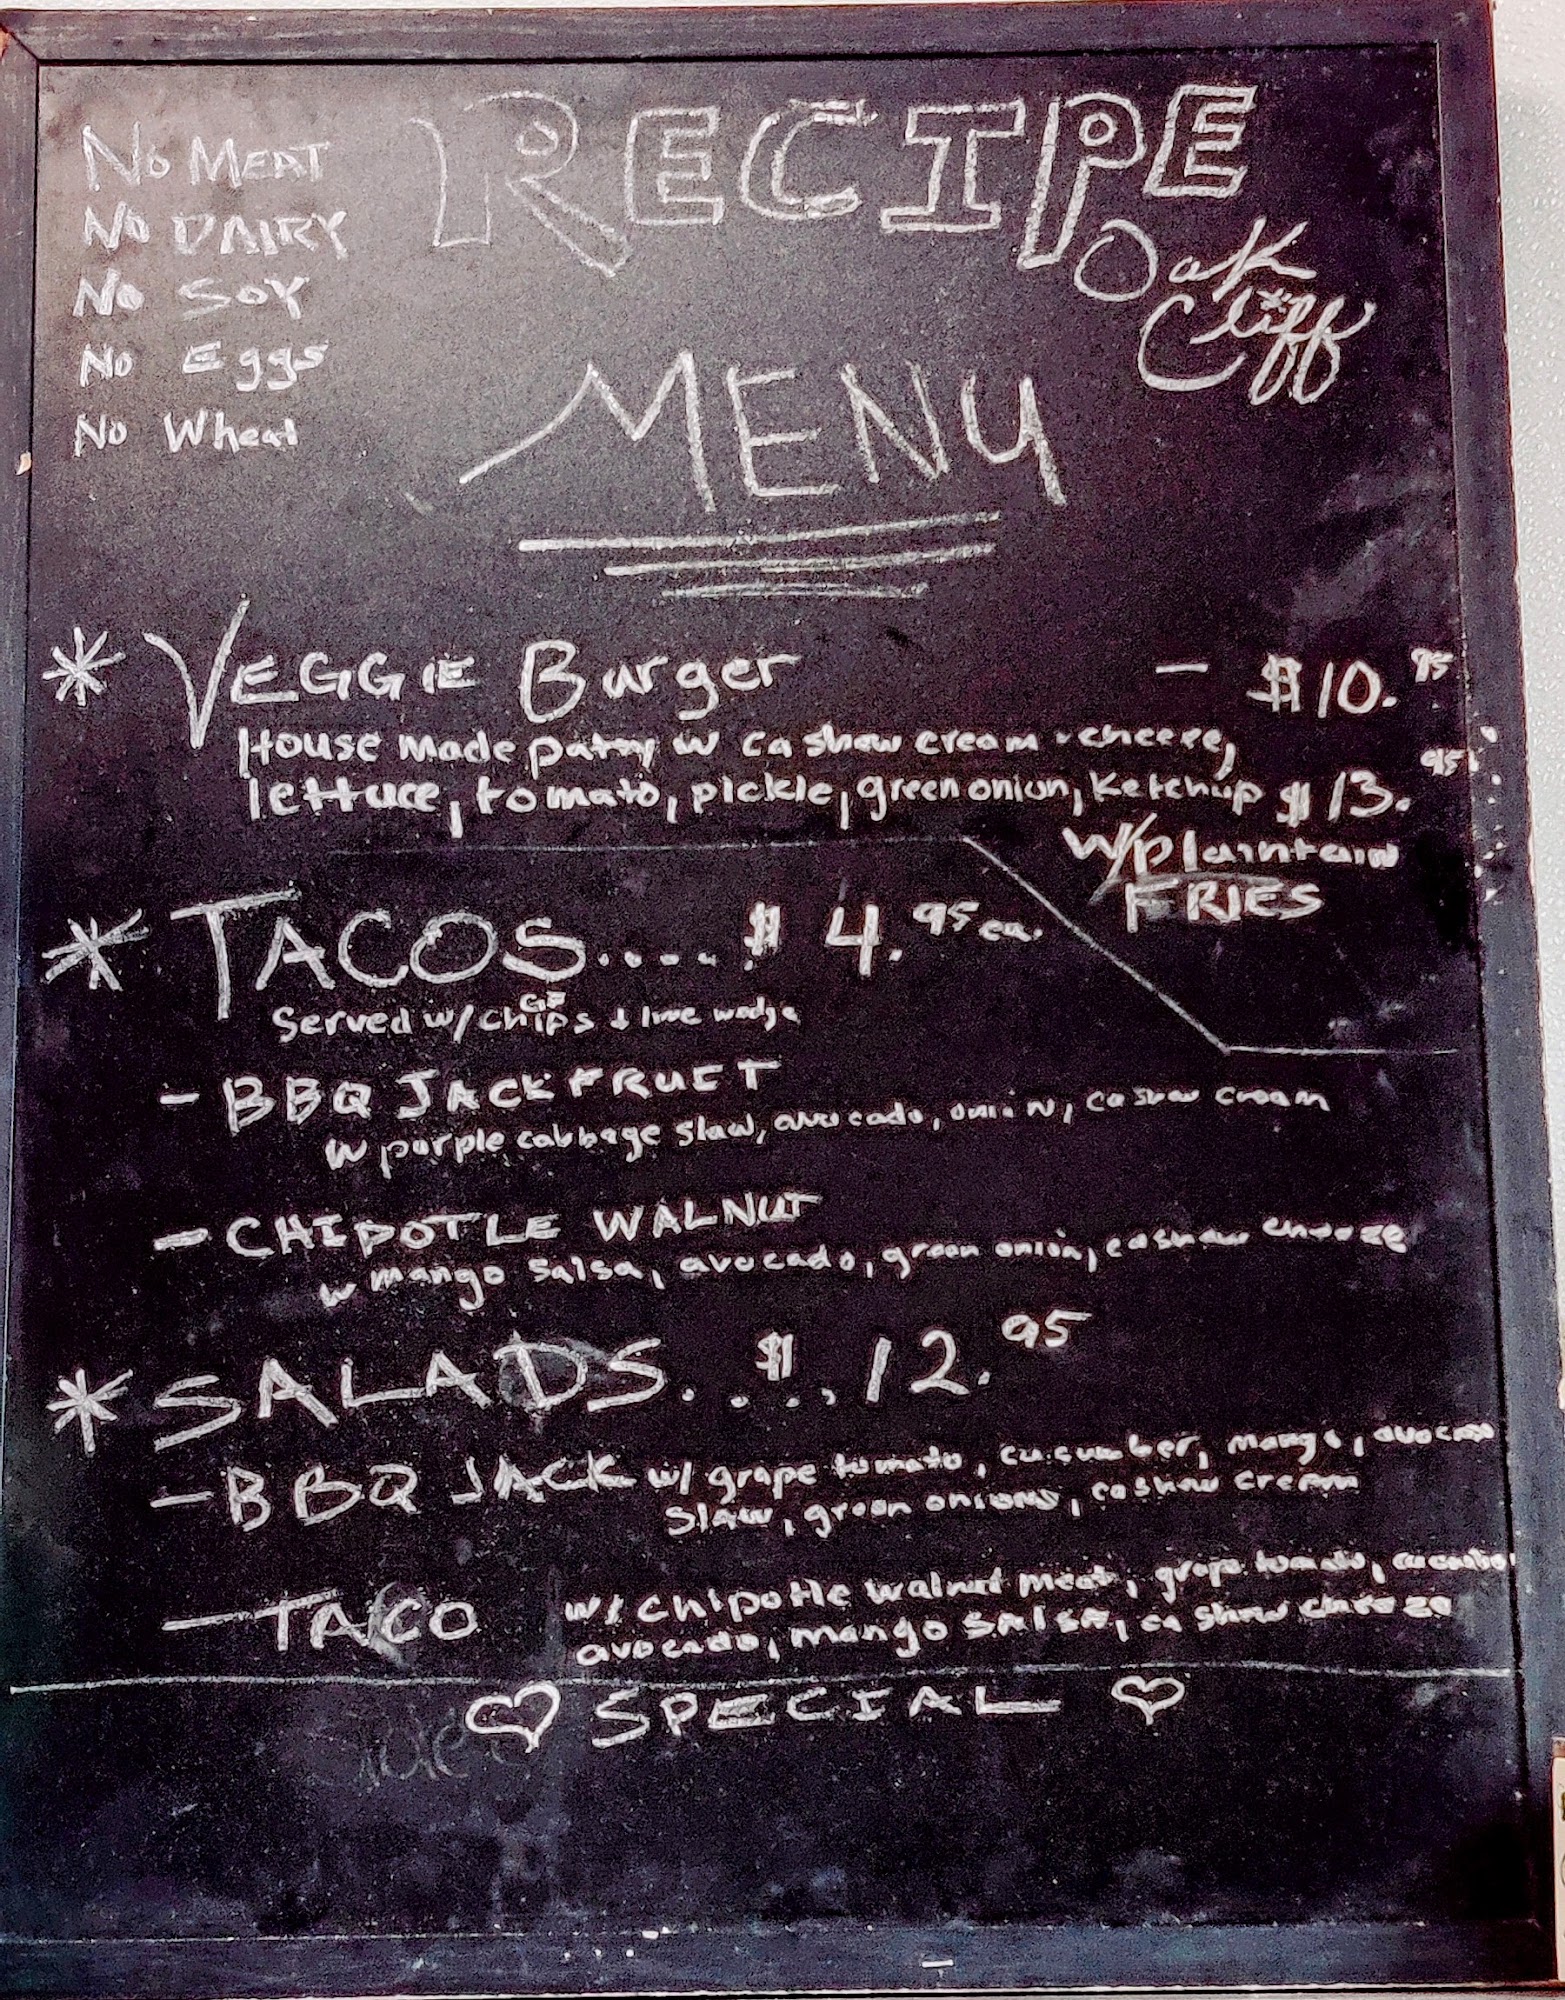 No MEAT
No DAIRY
No SOY
No Eggs
No Wheat
RECIPE
Oak
Cliff
MENU
* VEGGIE Burger — $10.95
House made patty w cashew cream + cheese,
lettuce, tomato, pickle, green onion, Ketchup $13.95
w/plaintain
FRIES
* TACOS..... $ 4.95 ea.
GF
Served w/ chips & lime wedge
- BBQ JACKFRUIT
w purple cabbage slaw, avocado, onion, cashew cream
- CHIPOTLE WALNUT
w mango salsa, avocado, green onion, cashew cheeze
* SALADS. . $ . . 12.95
- BBQ JACK w/ grape tomato, cucumber, mango, avocado
slaw, green onions, cashew cream
- TACO w/ chipotle walnut meat, grape tomato, cucumber
avocado, mango salsa, cashew cheeze
♡ SPECIAL ♡